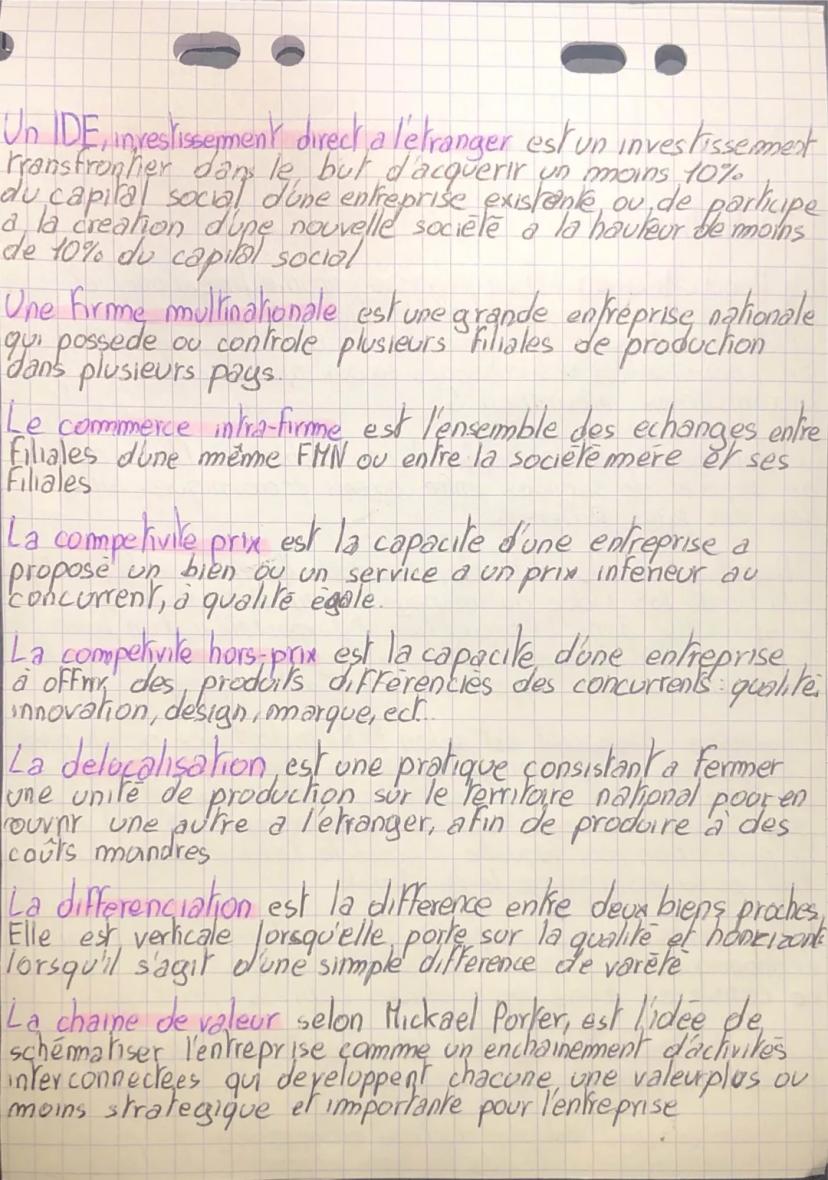 Un IDE, investissement direct a l'étranger est un investissement
transfrontier dans le but d'acquerir un moins 10%
du capital social d'une entreprise existante, ou de participe
a la creation d'une nouvelle société a la hauteur de moins
de 10% du capital social
Une firme multinationale est une grande entreprise nationale
qui possede ou controle plusieurs filiales de production
dans plusieurs pays.
Le commerce intra-firme est l'ensemble des echanges entre
filiales d'une même FMN ou entre la société mère et ses
filiales
La competivite prix est la capacite d'une entreprise a
propose un bien ou un service a un prix inferieur au
concurrent, à qualité égale.
La competivite hors-prix est la capacite d'une entreprise
à offrir des produits différenciés des concurrents : qualité,
innovation, design, marque, ect...
La delocalisation est une pratique consistant a fermer
une unité de production sur le territoire national pour en
rouvrir une autre a l'etranger, afin de produire à des
coûts moindres
La differenciation est la difference entre deux biens proches,
Elle est verticale lorsqu'elle porte sur la qualité et horizont
lorsqu'il s'agit d'une simple différence de varété
La chaine de valeur selon Mickael Porter, est l'idée de
schématiser l'entreprise comme un enchainement d'activités
interconnectées qui developpent chacune une valeur plus ou
moins strategique et importante pour l'entreprise